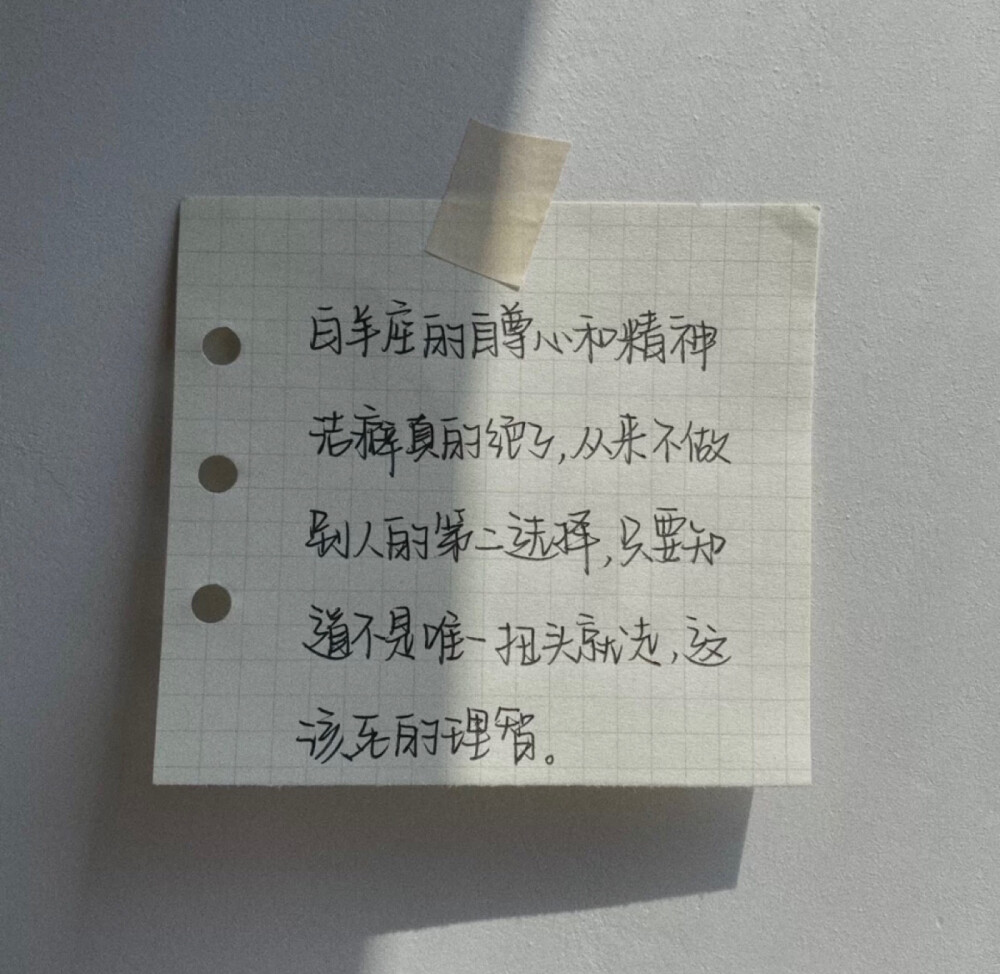 白羊座的自尊心和精神
洁癖真的绝了,从来不做
别人的第二选择,只要知
道不是唯一扭头就走,这
该死的理智。